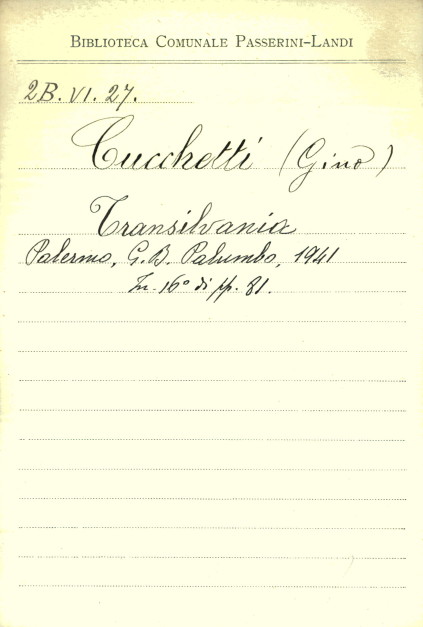 BIBLIOTECA COMUNALE PASSERINI-LANDI
2B. VI. 27.
Cucchetti (Gino)
Transilvania
Palermo, G. B. Palumbo, 1941
In-16° di pp. 81.